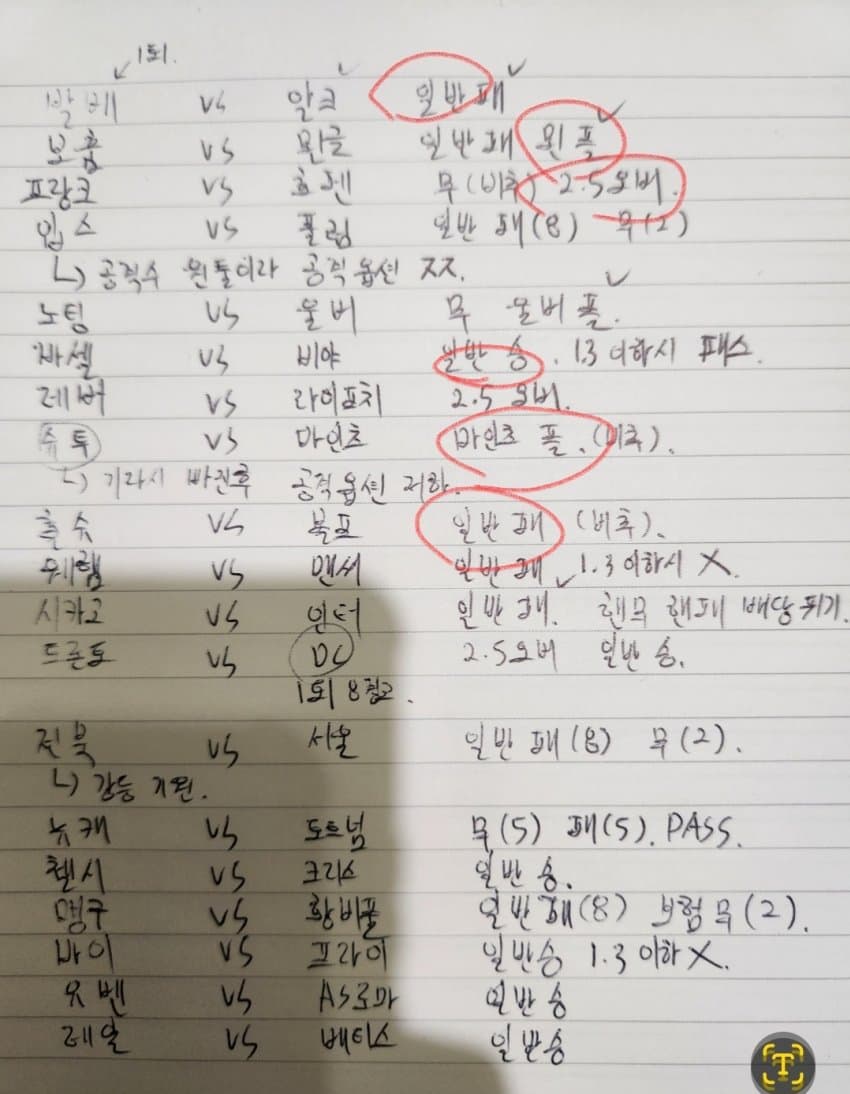 ↙1퇴.
발베 vs 알크 일반패
보훔 vs 묀글 일반패 묀플
프랑크 vs 호펜 무(비추) 2.5오버.
입스 vs 풀럼 일반패(8) 무(2)
↳ 공격수 원툴이라 공격옵션 ㅈㅈ.
노팅 vs 울버 무 울버플.
바셀 vs 비야 일반승. 1.3 이하시 패스.
레버 vs 라이프치 2.5오버.
슈투 vs 마인츠 마인츠 플.(비추).
↳ 기라시 빠진후 공격옵션 저하.
홀슈 vs 볼프 일반패 (비추).
웨햄 vs 맨시 일반패 1.3 이하시 X.
시카고 vs 인터 일반패. 핸무 핸패 배당 튀기.
토론토 vs DC 2.5오버 일반승.
1퇴 8참고.
전북 vs 서울 일반패(8) 무(2).
↳ 강등 지원.
뉴캐 vs 토트넘 무(5) 패(5). PASS.
첼시 vs 크리스 일반승.
맹구 vs 황버풀 일반패(8) 보험무(2).
바이 vs 프라이 일반승 1.3 이하 X.
유벤 vs AS로마 일반승
레알 vs 베티스 일반승